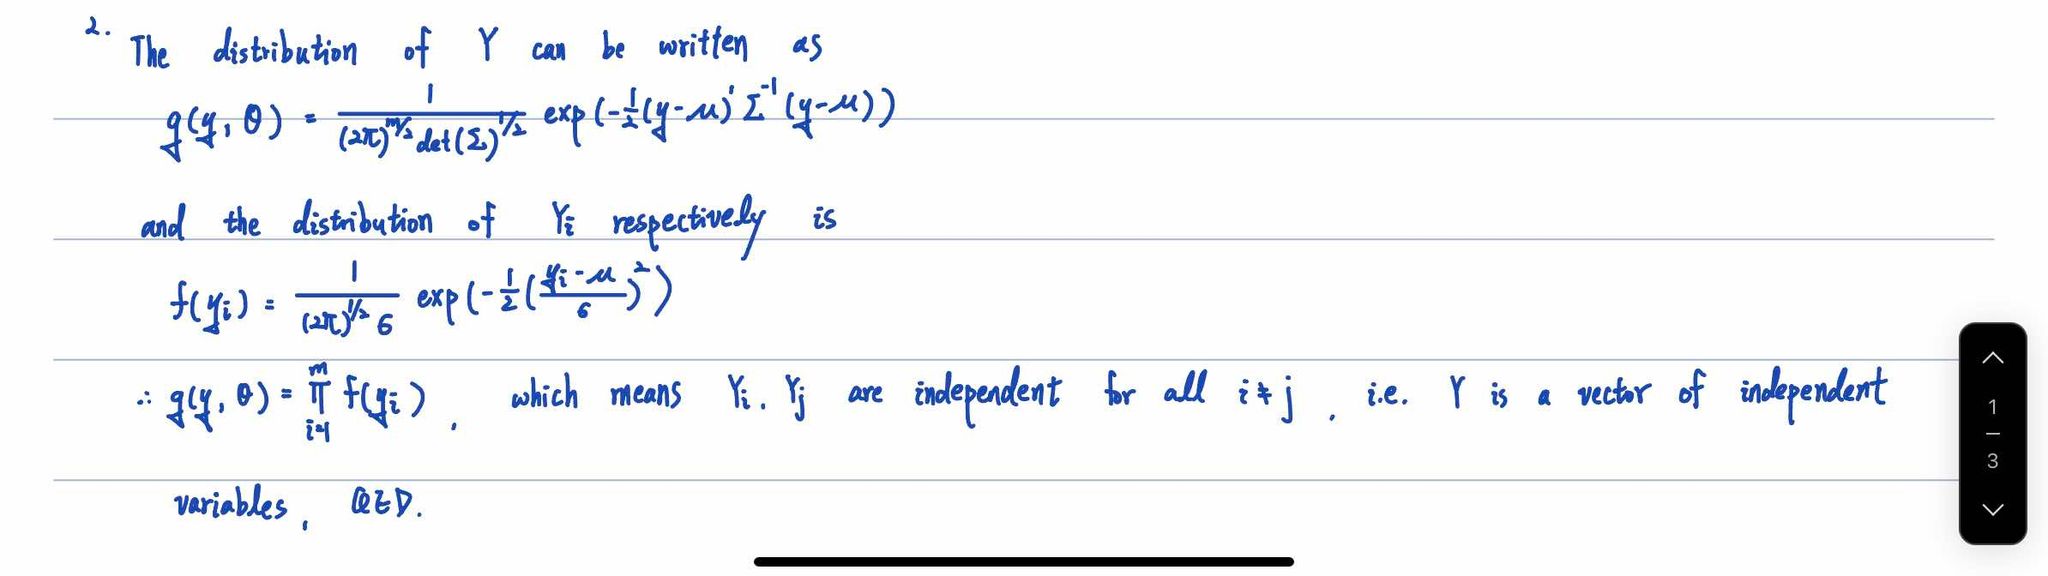 2. The distribution of Y can be written as
g(y, θ) = 1/((2π)^(m/2) det(Σ)^(1/2)) exp(-1/2(y-μ)'Σ^-1(y-μ))
and the distribution of Yi respectively is
f(yi) = 1/((2π)^(1/2) 6) exp(-1/2((yi-μ)/6)^2)
∴ g(y, θ) = ∏_{i=1}^{m} f(yi), which means Yi, Yj are independent for all i≠j, i.e. Y is a vector of independent
variables, QED.
1
3